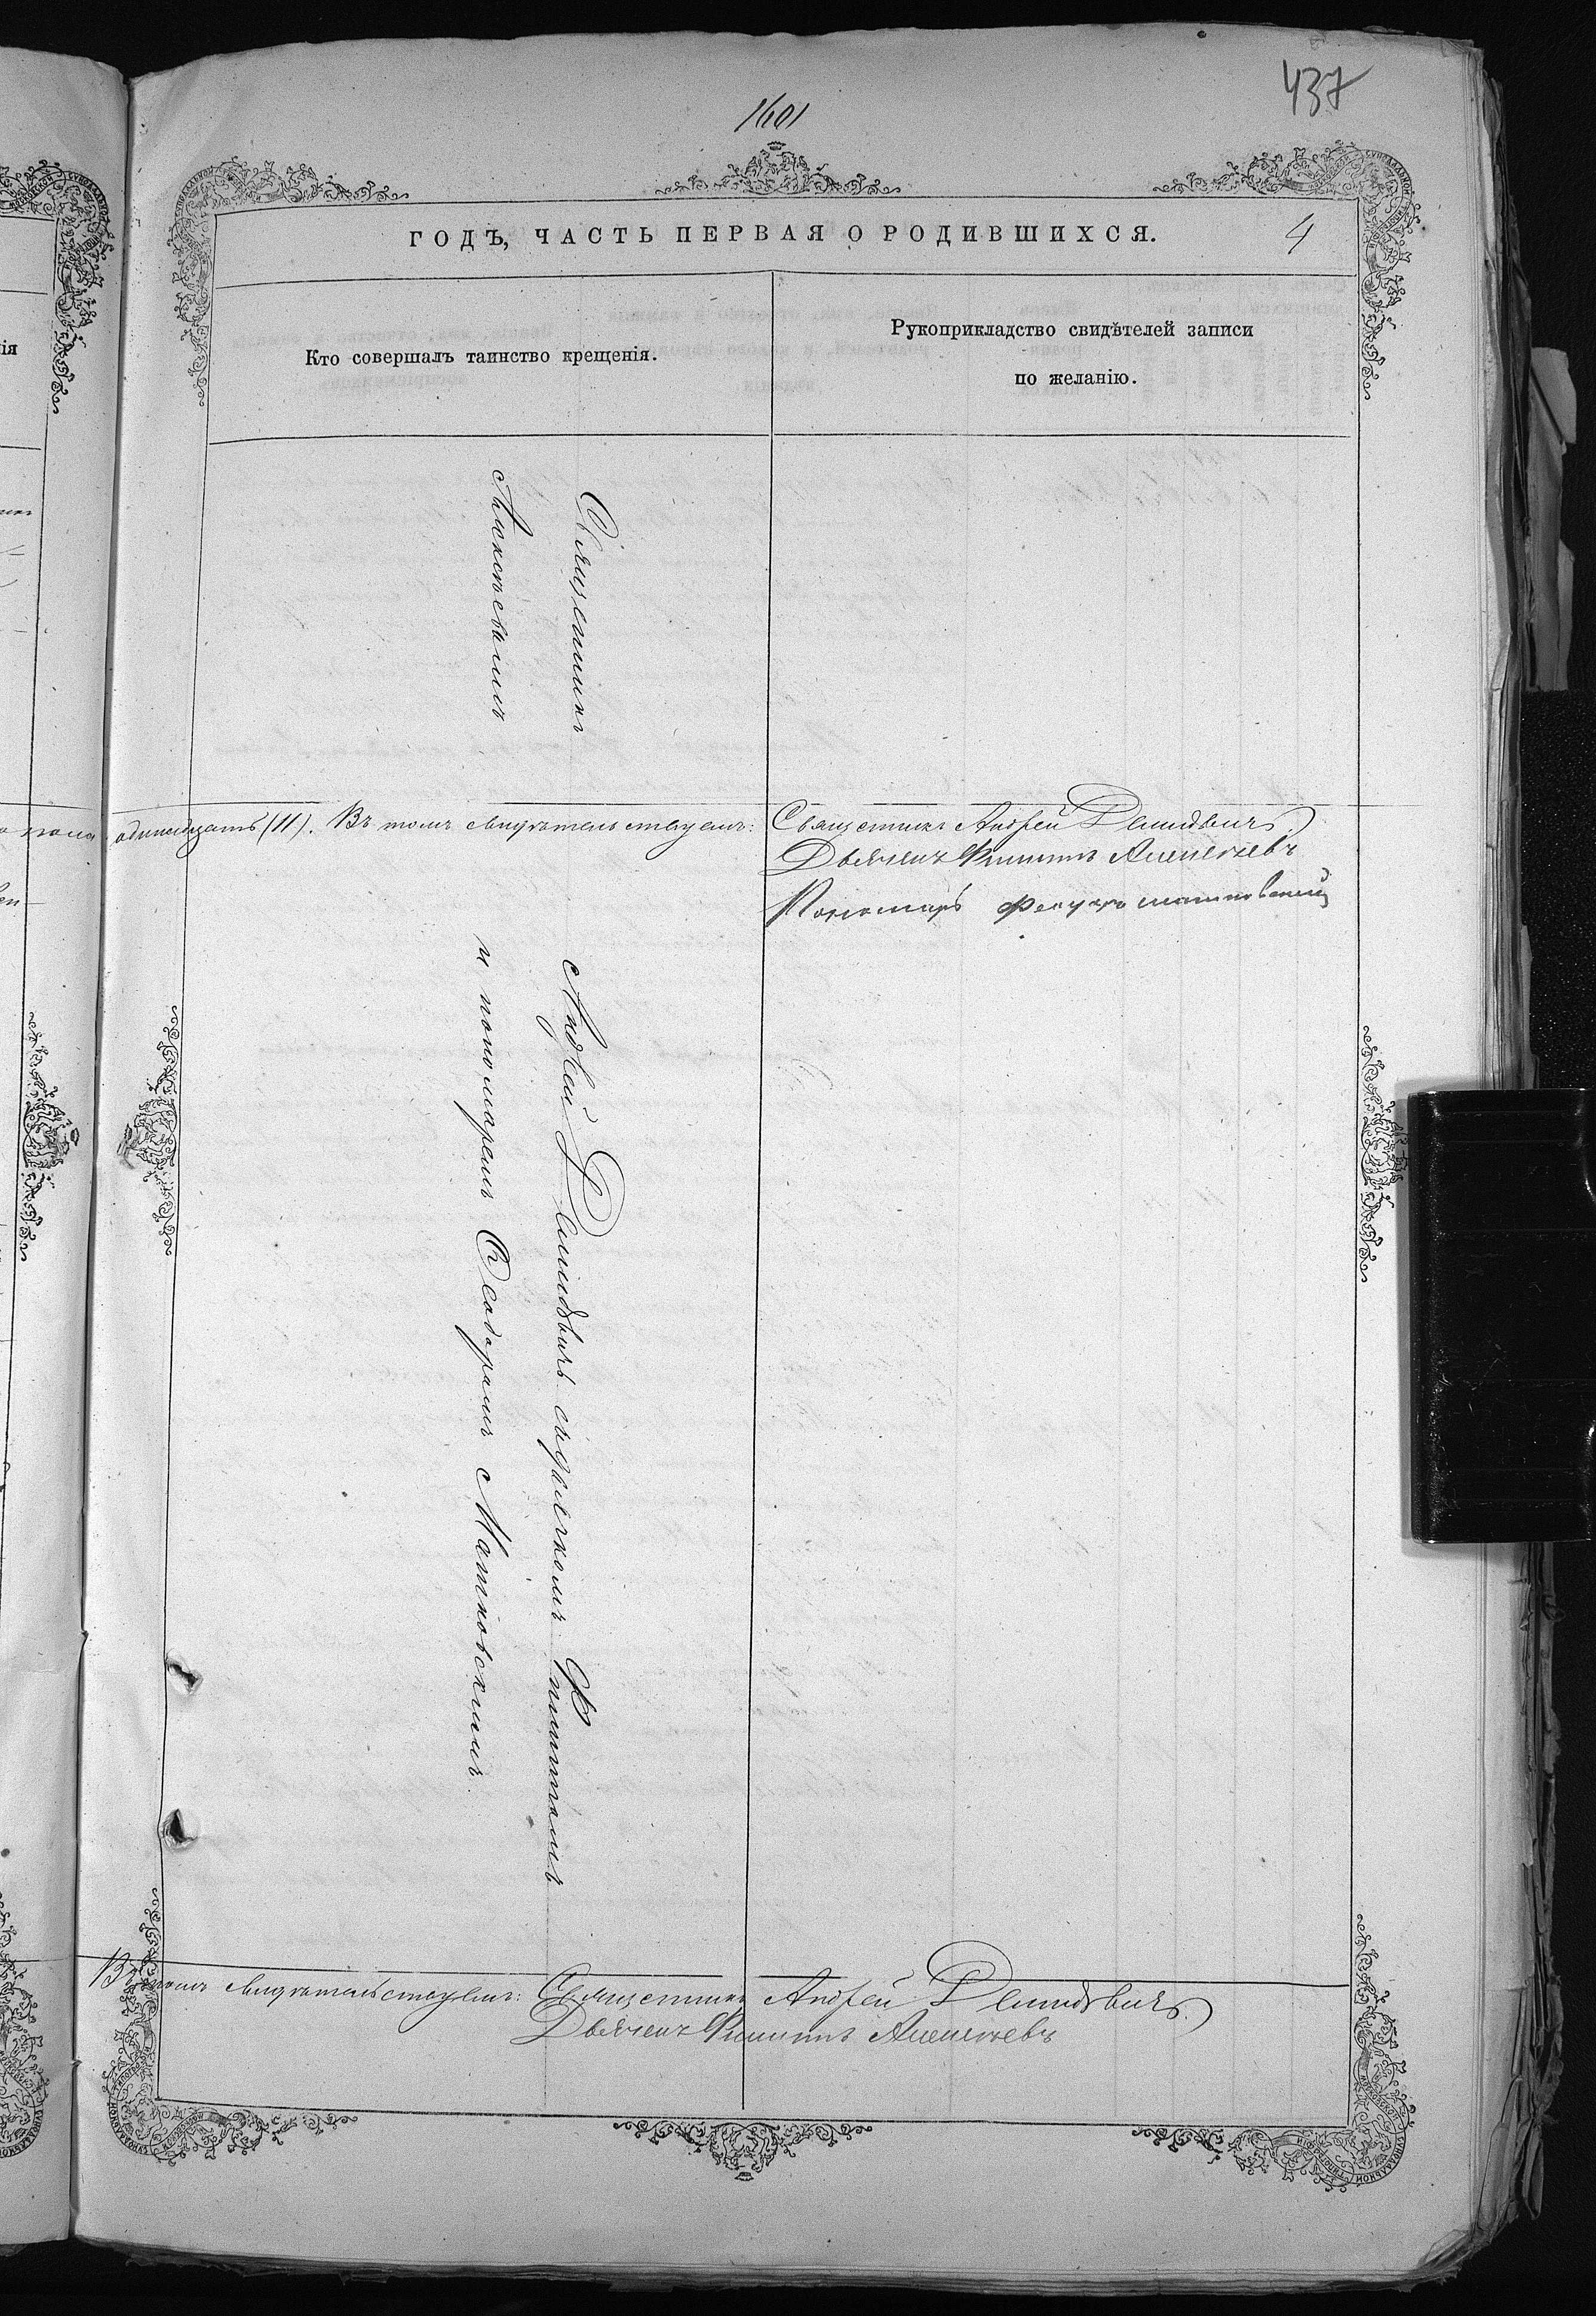 437
1601
ГОДЪ, ЧАСТЬ ПЕРВАЯ О РОДИВШИХСЯ.
4
Кто совершалъ таинство крещенія.
Рукоприкладство свидѣтелей записи
по желанію.
Священникъ
Алексѣевымъ
одинадцать (11). Въ томъ свидѣтельствуемъ:
Священникъ Андрей Демидовичъ.
Дьячекъ Филиппъ Алексѣевъ
Пономарь Маньковскій
Андрей Демидовичъ съ дьячкомъ Филиппомъ
и пономаремъ Ѳеодоромъ Маньковскимъ.
Въ томъ свидѣтельствуемъ: Священникъ Андрей Демидовичъ.
Дьячекъ Филиппъ Алексѣевъ